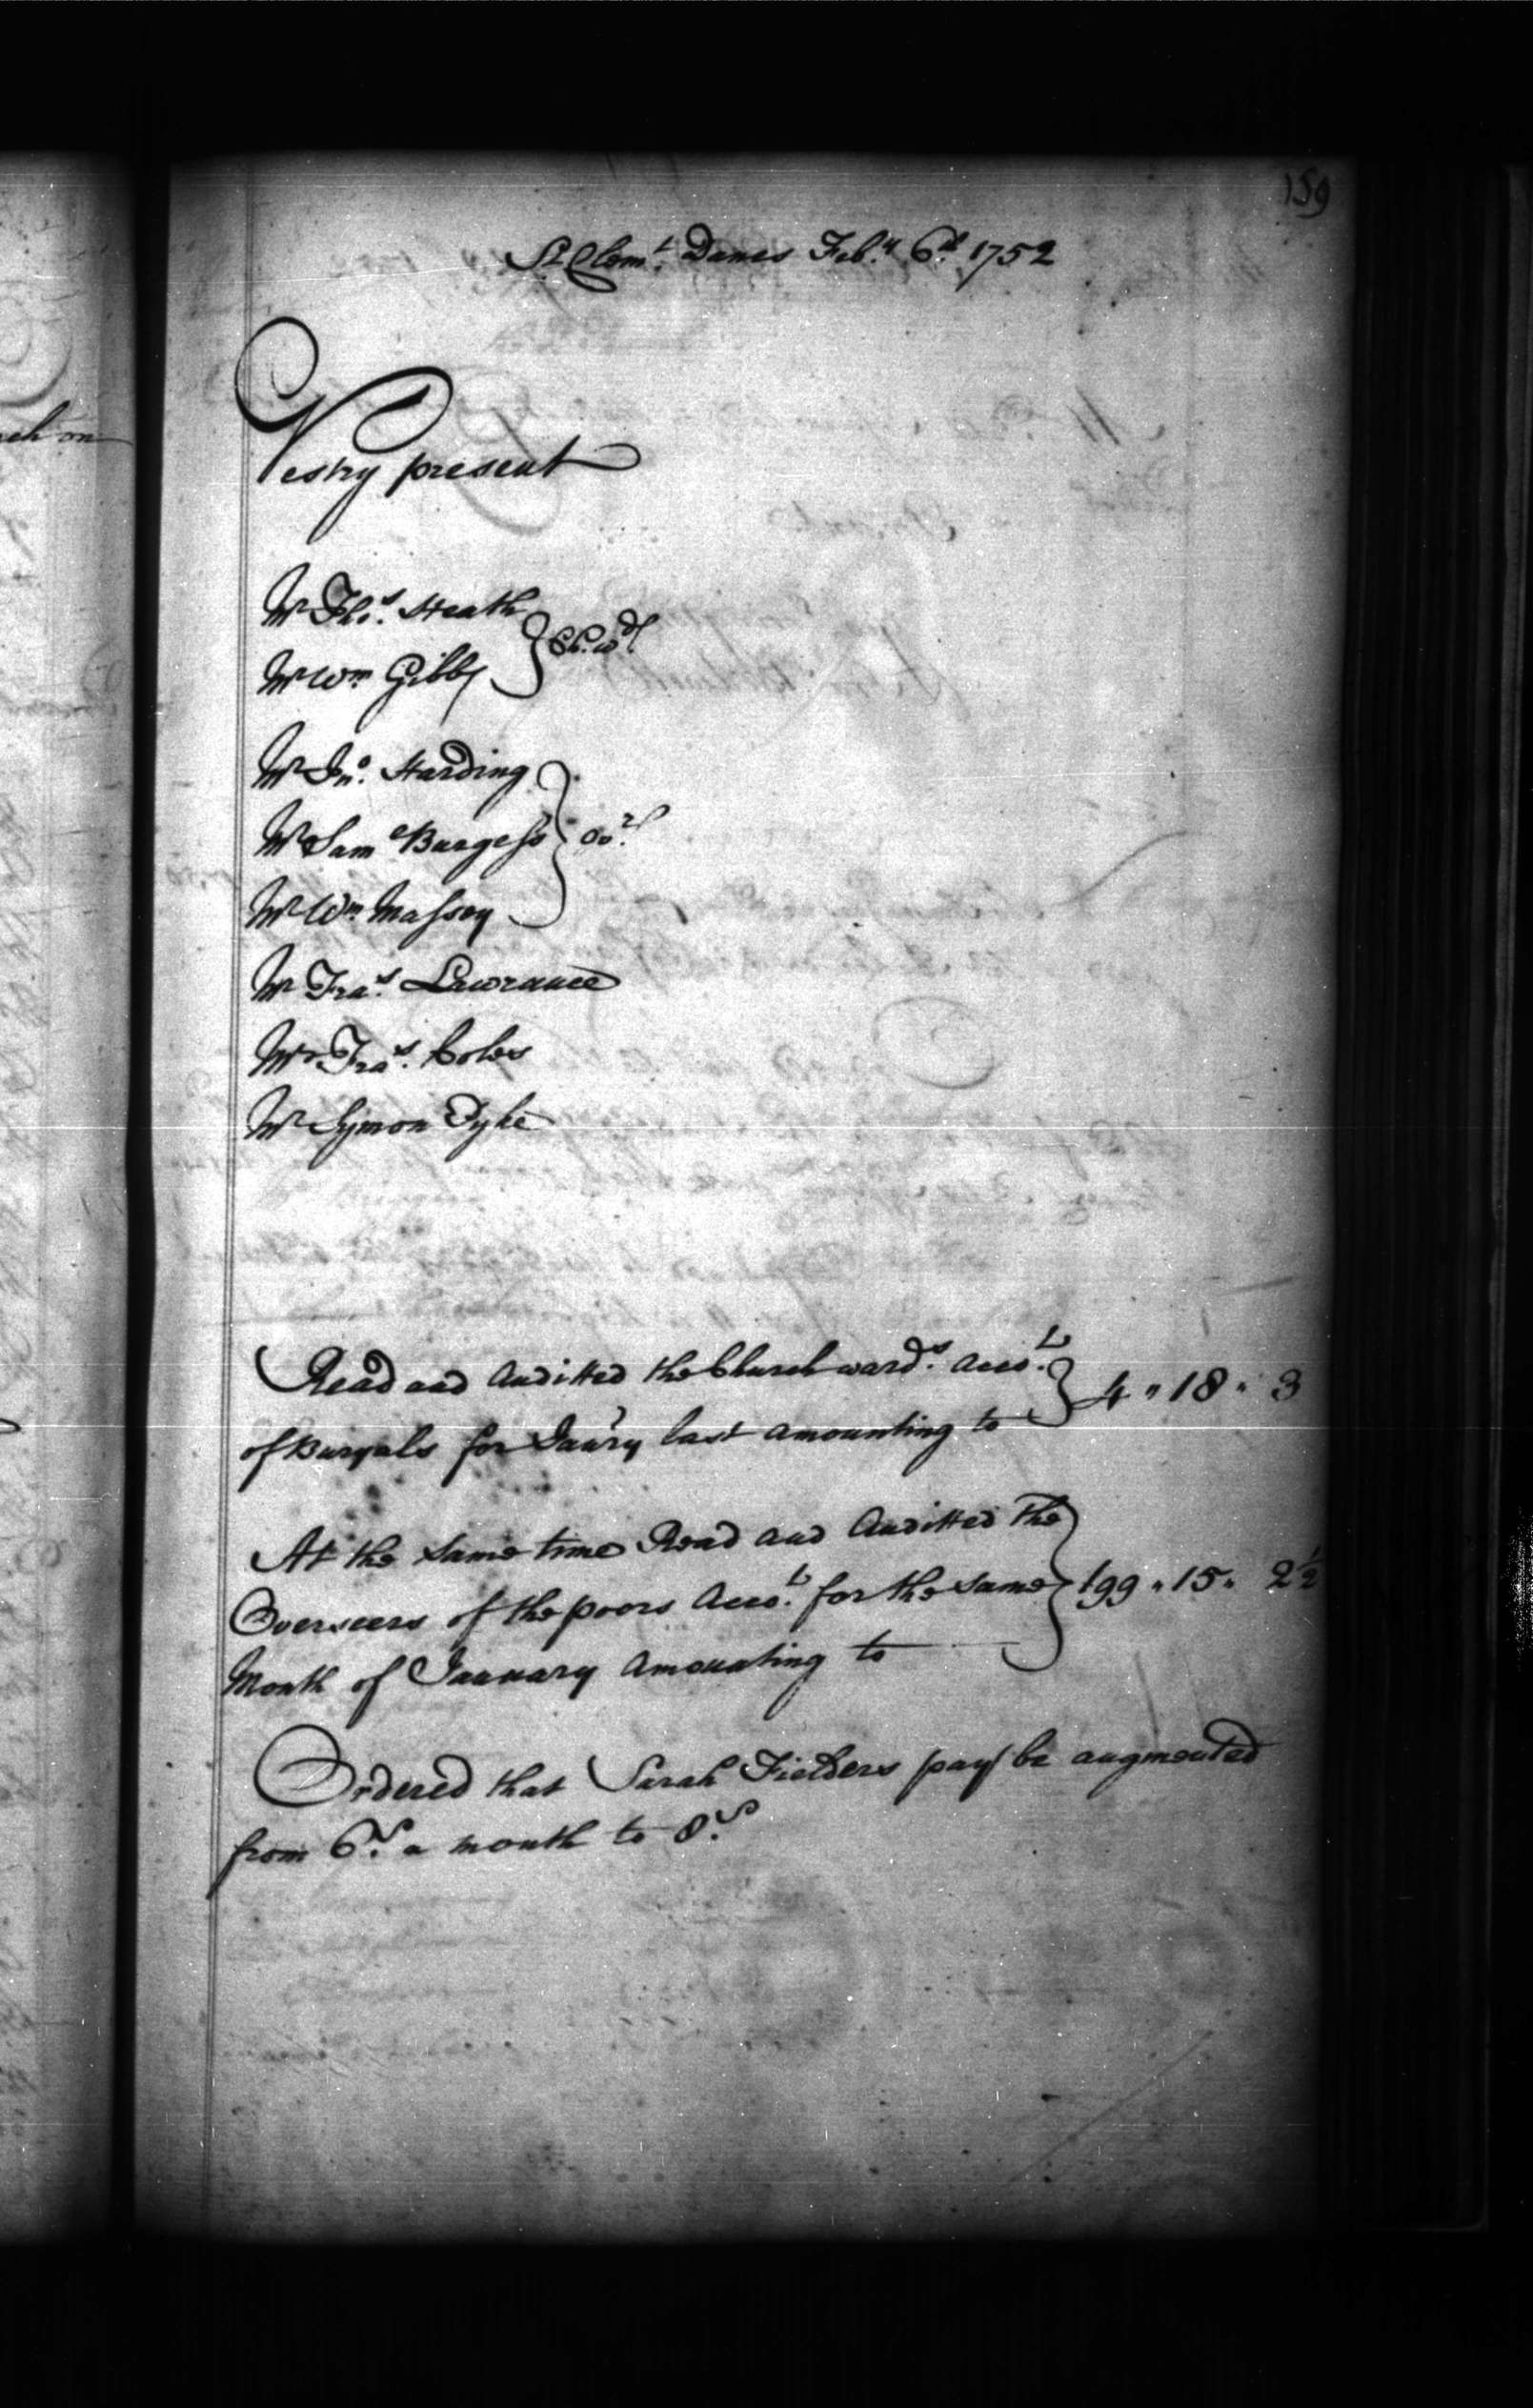 159
St. Clemt. Danes Feb.y 6th. 1752
Vestry present
Mr Thos. Heath
Mr Wm Gibbs } Ch:wds
Mr Jno. Harding
Mr Sam Burgess } Ovrs
Mr Wm. Massey
Mr Fras. Lawrance
Mr Fras. Coles
Mr Symon Dyke
Read and Auditted the Churchwards. Acco.t
of Buryals for Jan'ry last amounting to } 4 " 18 " 3
At the same time Read and Auditted the
Overseers of the poors Acco.t for the same } 199 " 15 " 2 1/2
Month of January Amounting to
Ordered that Sarah Fielders pay be augmented
from 6s. a month to 8s.